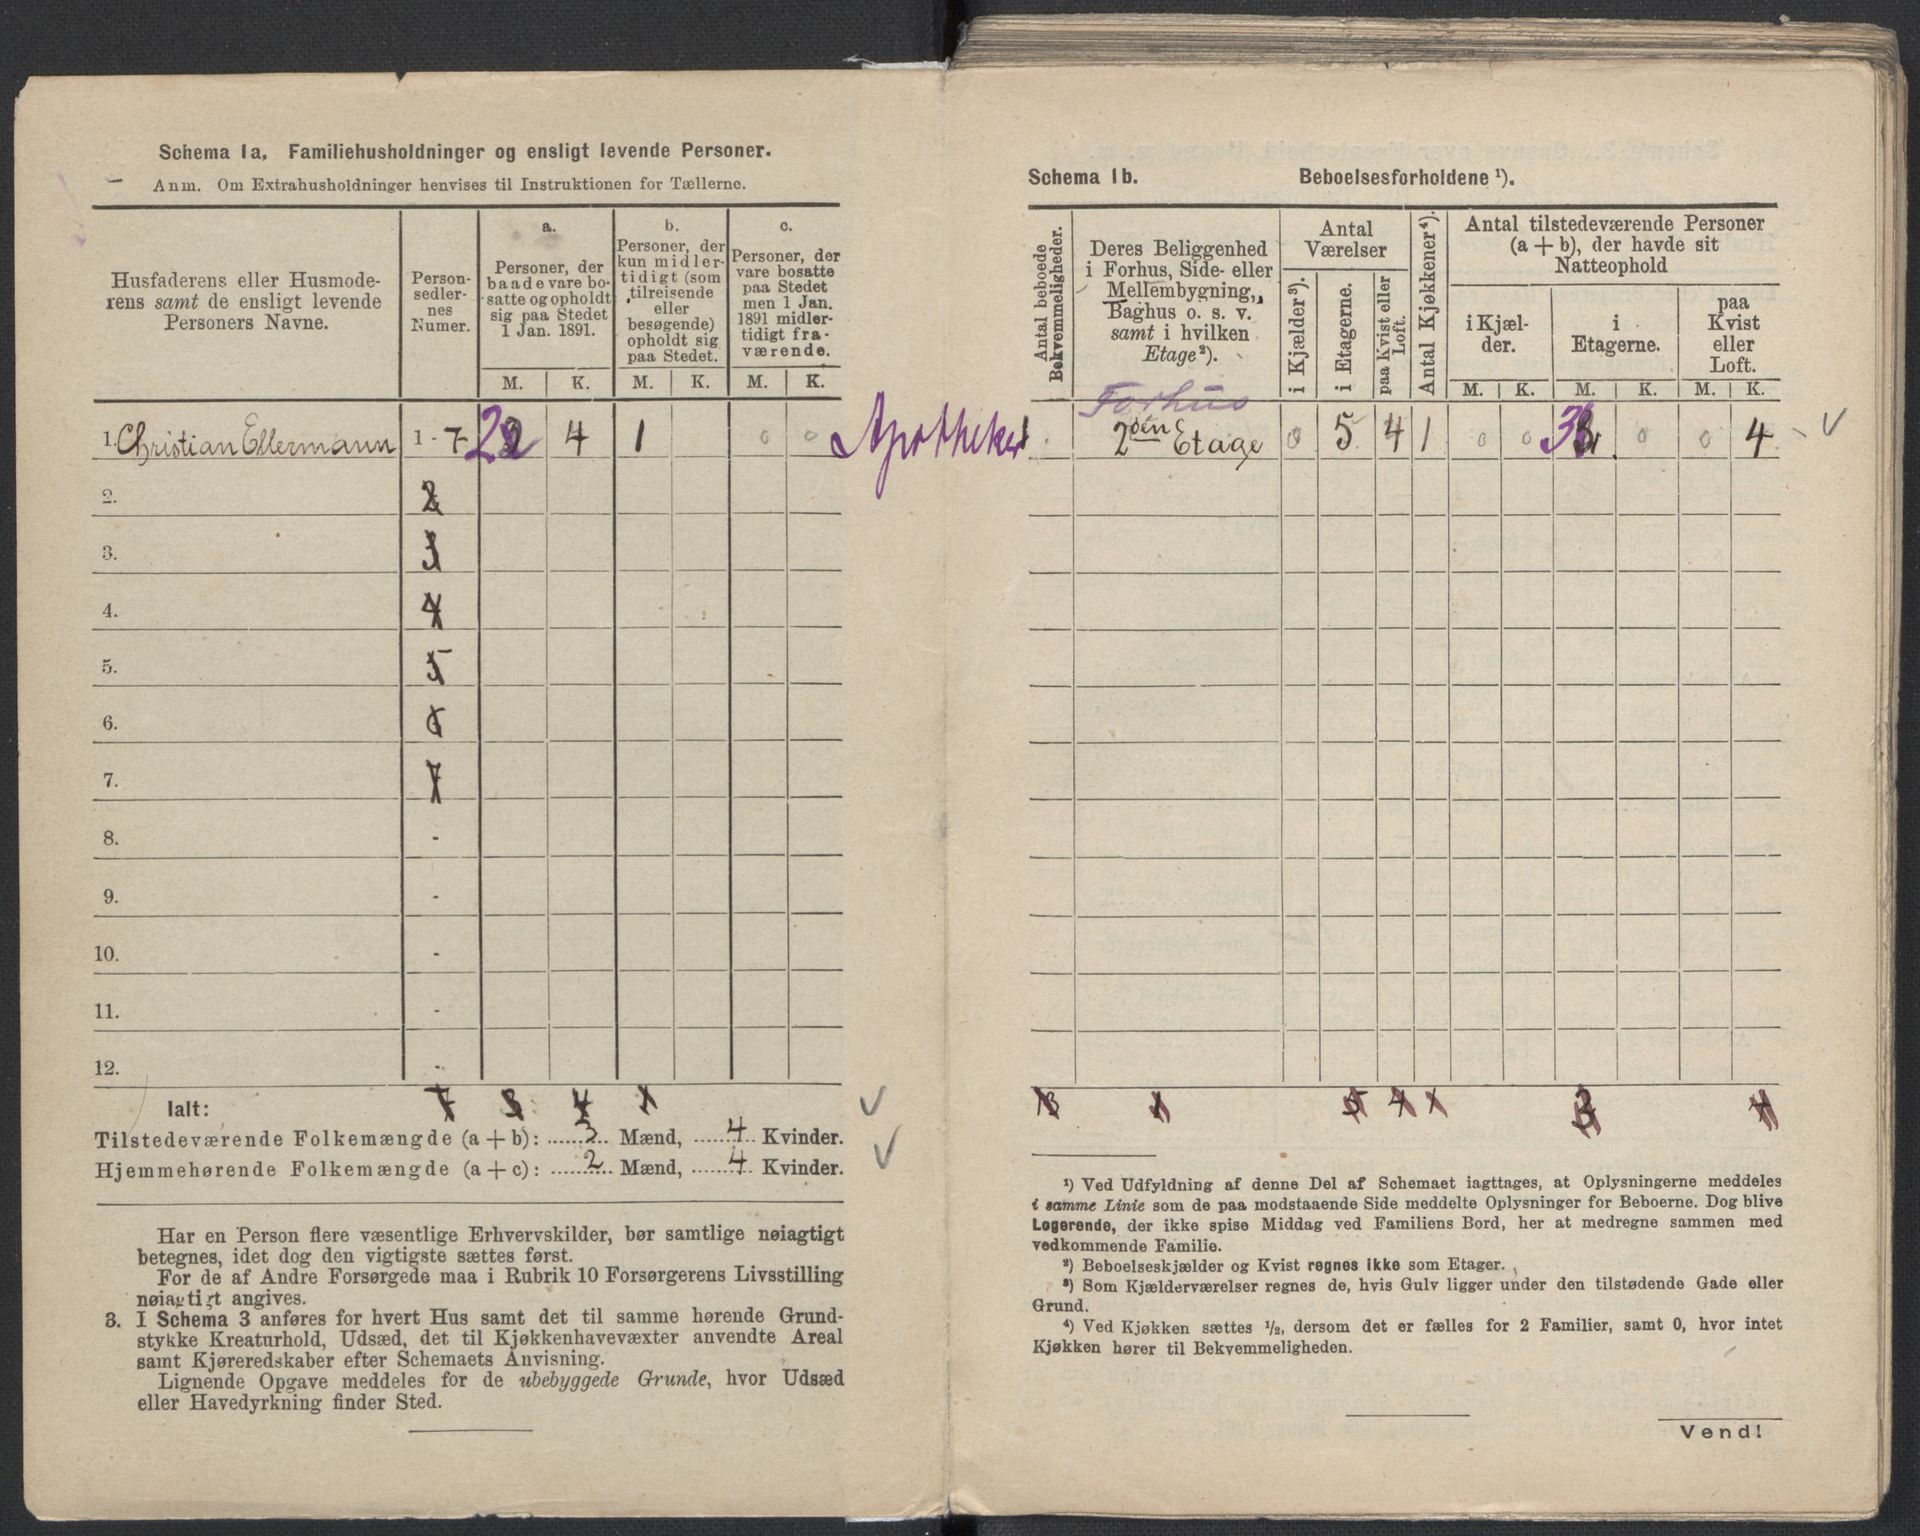 Schema 1a. Familiehusholdninger og ensligt levende Personer.
Anm. Om Extrahusholdninger henvises til Instruktionen for Tællerne.
Husfaderens eller Husmode-
rens samt de ensligt levende
Personers Navne.
Person-
sedler-
nes
Numer.
a.
Personer, der
baade vare bo-
satte og opholdt
sig paa Stedet
1 Jan. 1891.
b.
Personer, der
kun midler-
tidigt (som
tilreisende
eller
besøgende)
opholdt sig
paa Stedet.
c.
Personer, der
vare bosatte
paa Stedet
men 1 Jan.
1891 midler-
tidigt fra-
værende.
M. K. M. K. M. K.
1. Christian Ellermann 1 - 7 2 4 1 0 0
2. 2
3. 3
4. 4
5. 5
6. 6
7. 7
8. -
9. -
10. -
11. -
12. -
Ialt: 7 3 4 1
Tilstedeværende Folkemængde (a + b): 3 Mænd, 4 Kvinder.
Hjemmehørende Folkemængde (a + c): 2 Mænd, 4 Kvinder.
Har en Person flere væsentlige Erhvervskilder, bør samtlige nøiagtigt
betegnes, idet dog den vigtigste sættes først.
For de af Andre Forsørgede maa i Rubrik 10 Forsørgerens Livsstilling
nøiagtigt angives.
3. I Schema 3 anføres for hvert Hus samt det til samme hørende Grund-
stykke Kreaturhold, Udsæd, det til Kjøkkenhavevæxter anvendte Areal
samt Kjøreredskaber efter Schemaets Anvisning.
Lignende Opgave meddeles for de ubebyggede Grunde, hvor Udsæd
eller Havedyrkning finder Sted.
Schema 1b. Beboelsesforholdene ¹).
Antal beboede
Bekvemmeligheder.
Deres Beliggenhed
i Forhus, Side- eller
Mellembygning,
Baghus o. s. v.
samt i hvilken
Etage²).
Antal
Værelser
i Kjælder³).
i Etagerne.
paa Kvist eller
Loft.
Antal Kjøkkener⁴).
Antal tilstedeværende Personer
(a + b), der havde sit
Natteophold
i Kjæl-
der.
i
Etagerne.
paa
Kvist
eller
Loft.
M. K. M. K. M. K.
Forhus
Apotheket 2den Etage 0 5 4 1 0 0 3 0 0 4
1 5 4 1 3 4
¹) Ved Udfyldning af denne Del af Schemaet iagttages, at Oplysningerne meddeles
i samme Linie som de paa modstaaende Side meddelte Oplysninger for Beboerne. Dog blive
Logerende, der ikke spise Middag ved Familiens Bord, her at medregne sammen med
vedkommende Familie.
²) Beboelseskjælder og Kvist regnes ikke som Etager.
³) Som Kjælderværelser regnes de, hvis Gulv ligger under den tilstødende Gade eller
Grund.
⁴) Ved Kjøkken sættes ½, dersom det er fælles for 2 Familier, samt 0, hvor intet
Kjøkken hører til Bekvemmeligheden.
Vend!